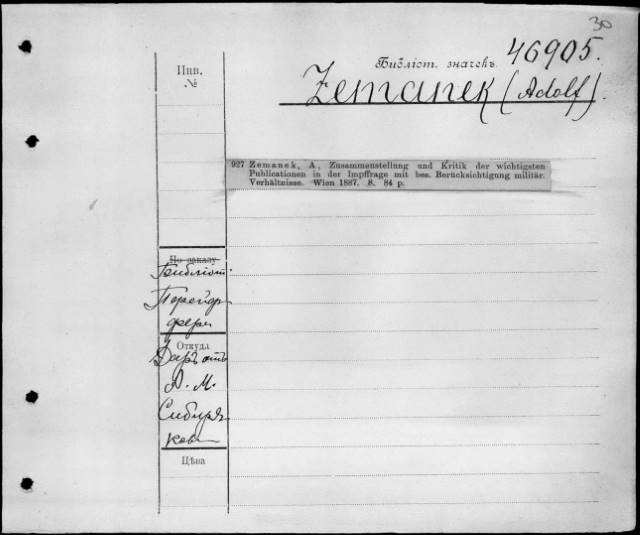 30
Инв.
№
Библіот. значекъ 46905.
Zemanek (Adolf).
927 Zemanek, A., Zusammenstellung und Kritik der wichtigsten
Publicationen in der Impffrage mit bes. Berücksichtigung militär.
Verhältnisse. Wien 1887. 8. 84 p.
По заказу
Библіот.
Порейдр
фера
Откуда
Даръ отъ
А. М.
Сибиря
кова
Цѣна